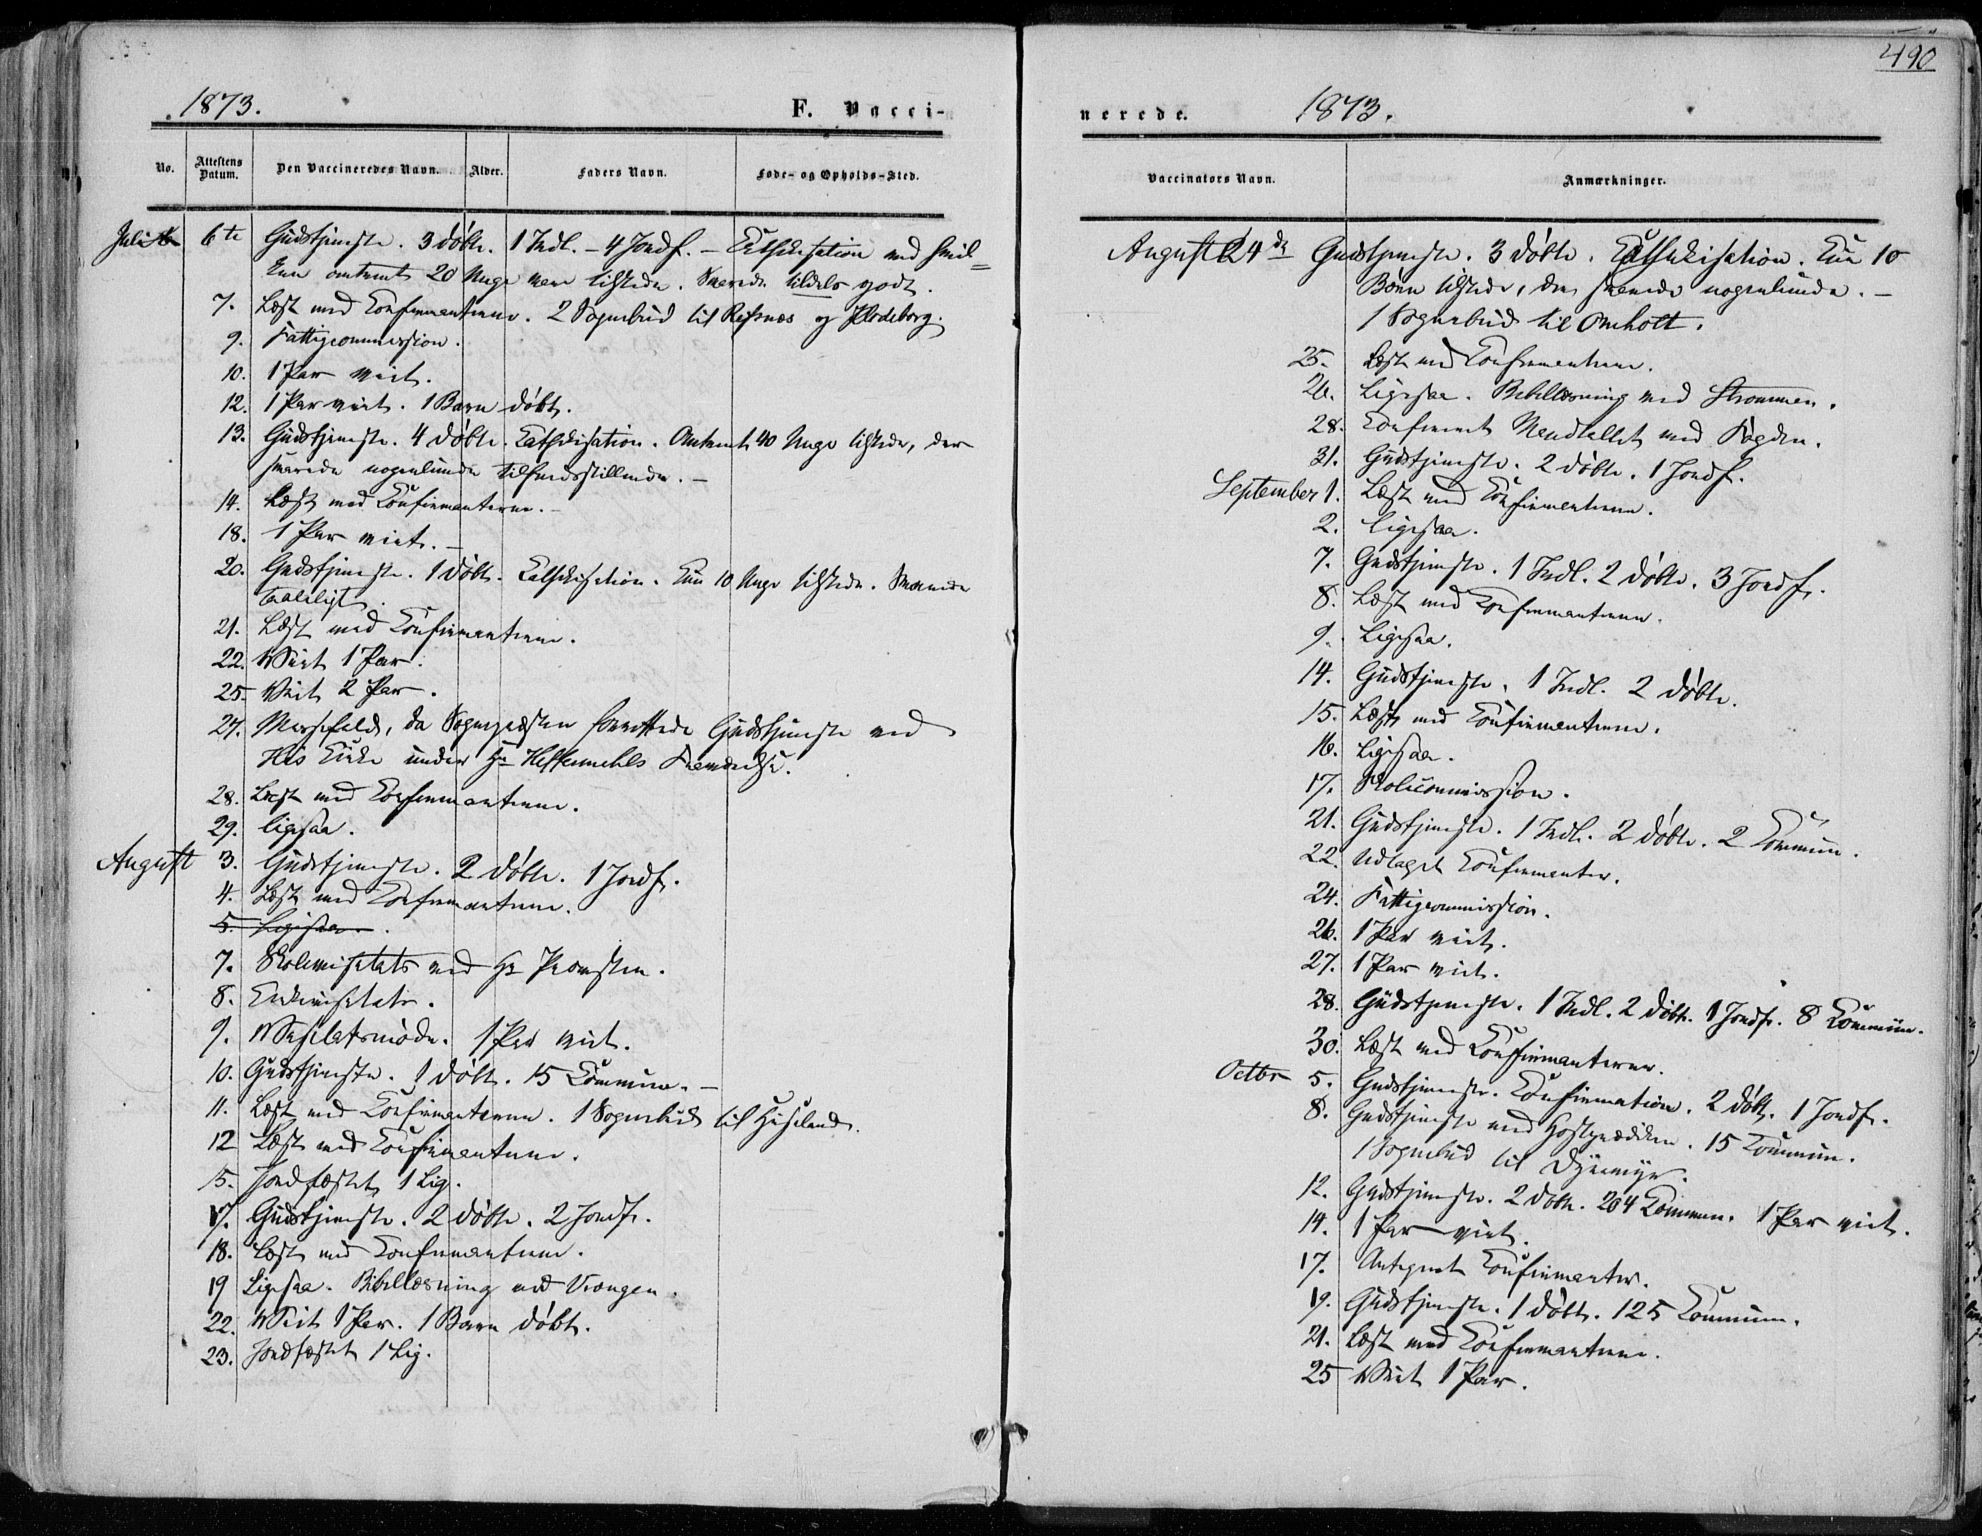 490
1873.
F. Vacci-
No.
Attestens Datum.
Den Vaccineredes Navn.
Alder.
Faders Navn.
Føde- og Opholds-Sted.
Juli 6te Gudstjeneste. 3 døbte. 1 Indl. - 4 Jordf. - Cathekisation med
omtrent 20 Unge vare tilstede. Svarede tildels godt.
7. Læst med Confirmanterne. 2 Sognebud til Refsnæs og Flødeborg.
9. Fattigcommission.
10. 1 Par viet.
12. 1 Par viet. 1 Barn døbt.
13. Gudstjeneste. 4 døbte. Cathekisation. Omtrent 40 Unge tilstede, der
svarede nogenlunde tilfredsstillende. -
14. Læst med Confirmanterne. -
18. 1 Par viet. -
20. Gudstjeneste. 1 døbt. Cathekisation. Kun 10 Unge tilstede. Svarede
taaleligt.
21. Læst med Confirmanterne.
22. Viet 1 Par.
25. Viet 2 Par.
27. Messefald, da Sognepræsten forrettede Gudstjeneste ved
His Kirke under Hr Heffermehls Fraværelse.
28. Læst med Confirmanterne.
29. ligesaa.
August 3. Gudstjeneste. 2 døbte. 1 Jordf.
4. Læst med Confirmanterne.
5. Ligesaa.
7. Skolevisitats ved Hr Provsten.
8. Kirkevisitats.
9. Visitatsmøde. 1 Par viet.
10. Gudstjeneste. 1 døbt. 15 Commun. -
11. Læst med Confirmanterne. 1 Sognebud til Hiseland.
12 Læst med Confirmanterne.
15. Jordfæstet 1 Lig.
17. Gudstjeneste. 2 døbte. 2 Jordf.
18. Læst med Confirmanterne.
19 Ligesaa. Bibellæsning ved Vrengen.
22. Viet 1 Par. 1 Barn døbt.
23. Jordfæstet 1 Lig.
nerede.
1873.
Vaccinators Navn.
Anmærkninger.
August 24de Gudstjeneste. 3 døbte. Cathekisation. Kun 10
Børn tilstede, der svarede nogenlunde. -
1 Sognebud til Omholt.
25. Læst med Confirmanterne.
26. Ligesaa. Bibellæsning ved Strømmen.
28. Confereret Mandtallet med Fogden.
31. Gudstjeneste. 2 døbte. 1 Jordf.
September 1. Læst med Confirmanterne.
2. Ligesaa.
7. Gudstjeneste. 1 Indl. 2 døbte. 3 Jordf.
8. Læst med Confirmanterne.
9. Ligesaa.
14. Gudstjeneste. 1 Indl. 2 døbte.
15. Læst med Confirmanterne.
16. Ligesaa.
17. Skolecommission.
21. Gudstjeneste. 1 Indl. 2 døbte. 2 Commun.
22. Udtaget Confirmanter.
24. Fattigcommission.
26. 1 Par viet.
27. 1 Par viet.
28. Gudstjeneste. 1 Indl. 2 døbt. 1 Jordf. 8 Commun.
30. Læst med Confirmanterne.
Octbr 5. Gudstjeneste. Confirmation. 2 døbt. 1 Jordf.
8. Gudstjeneste med Høstprædiken. 15 Commun.
1 Sognebud til
12. Gudstjeneste. 2 døbte. 204 Commun. 1 Par viet.
14. 1 Par viet.
17. Antegnet Confirmanter.
19. Gudstjeneste. 1 døbt. 125 Commun.
21. Læst med Confirmanterne.
25 Viet 1 Par.